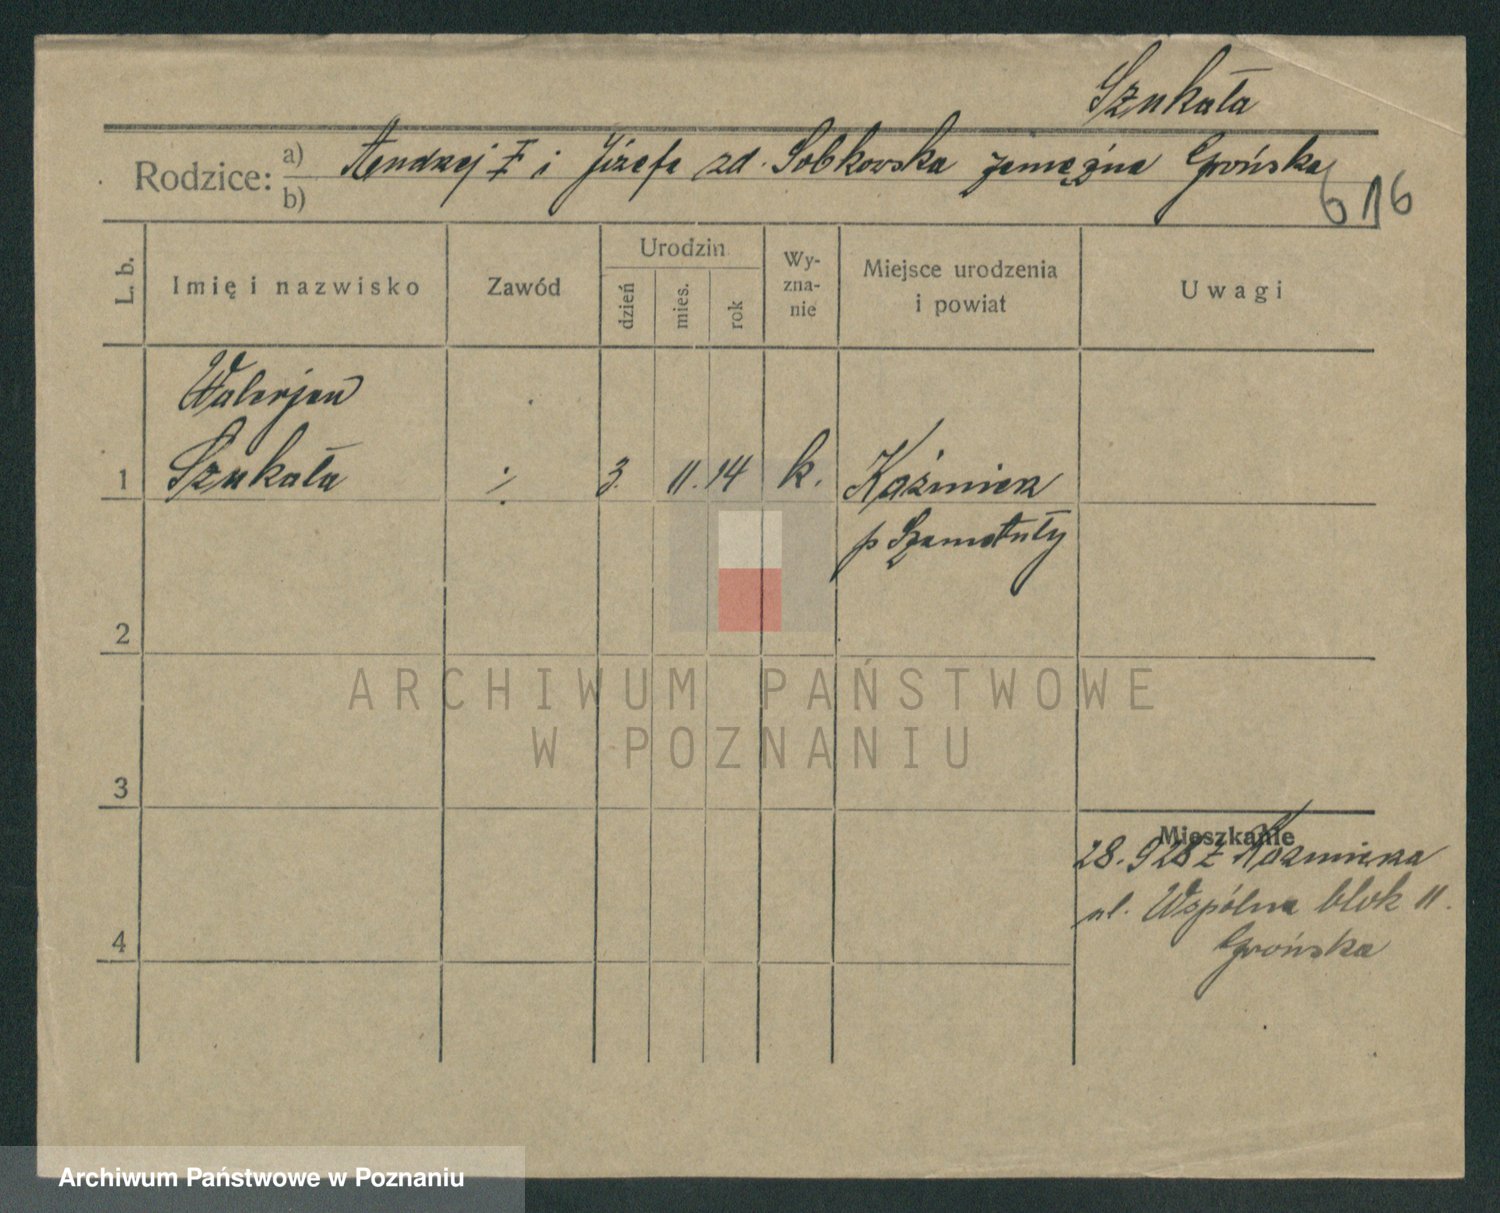 Szukała
Rodzice: a) Andrzej † i Józefa zd. Sobkowska zamężna Grońska
b)
616
L. b.
Imię i nazwisko
Zawód
Urodzin
dzień
mies.
rok
Wy-
zna-
nie
Miejsce urodzenia
i powiat
Uwagi
Walerjan
1 Szukała ./. 3. 11. 14 k. Kaźmierz
p Szamotuły
2
3
4
Mieszkanie
28. 9 28 z Kaźmierza
ul. Wspólna blok 11.
Grońska
ARCHIWUM PAŃSTWOWE
W POZNANIU
Archiwum Państwowe w Poznaniu